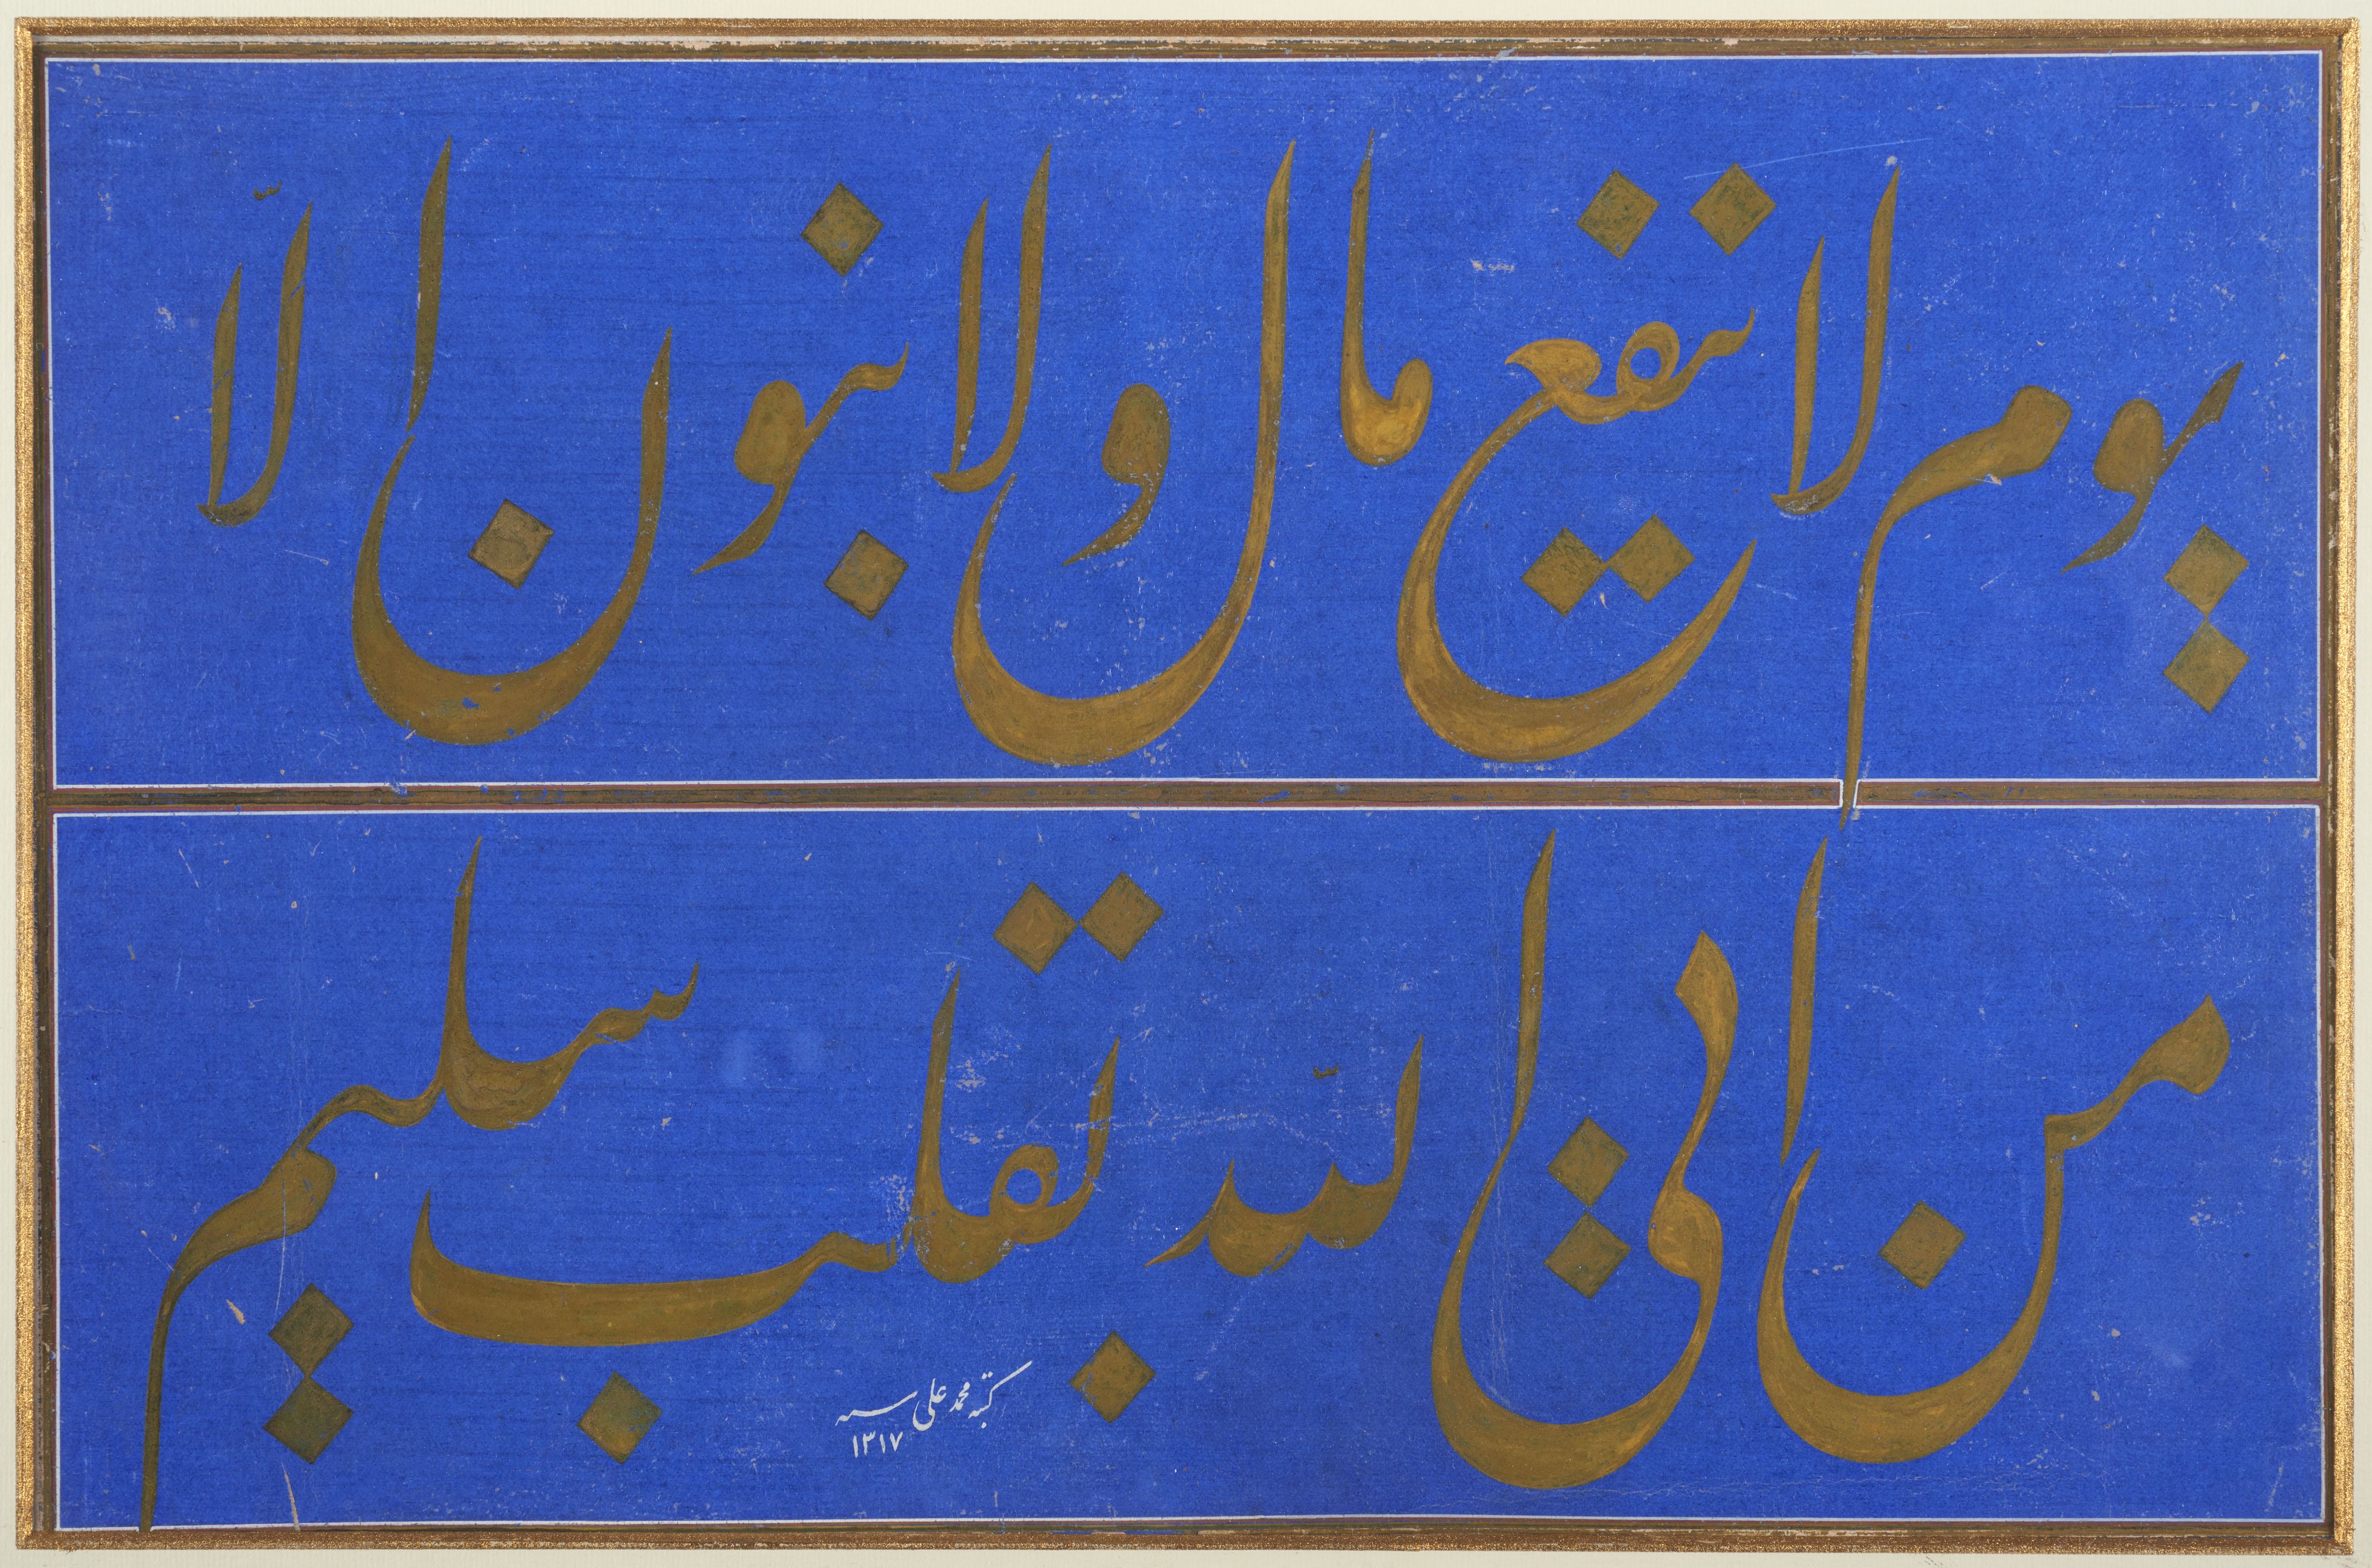 يوم لا ينفع مال ولا بنون الّا
من اتي اللّه بقلب سليم
كتبه محمد علی سنه
۱۳۱۷